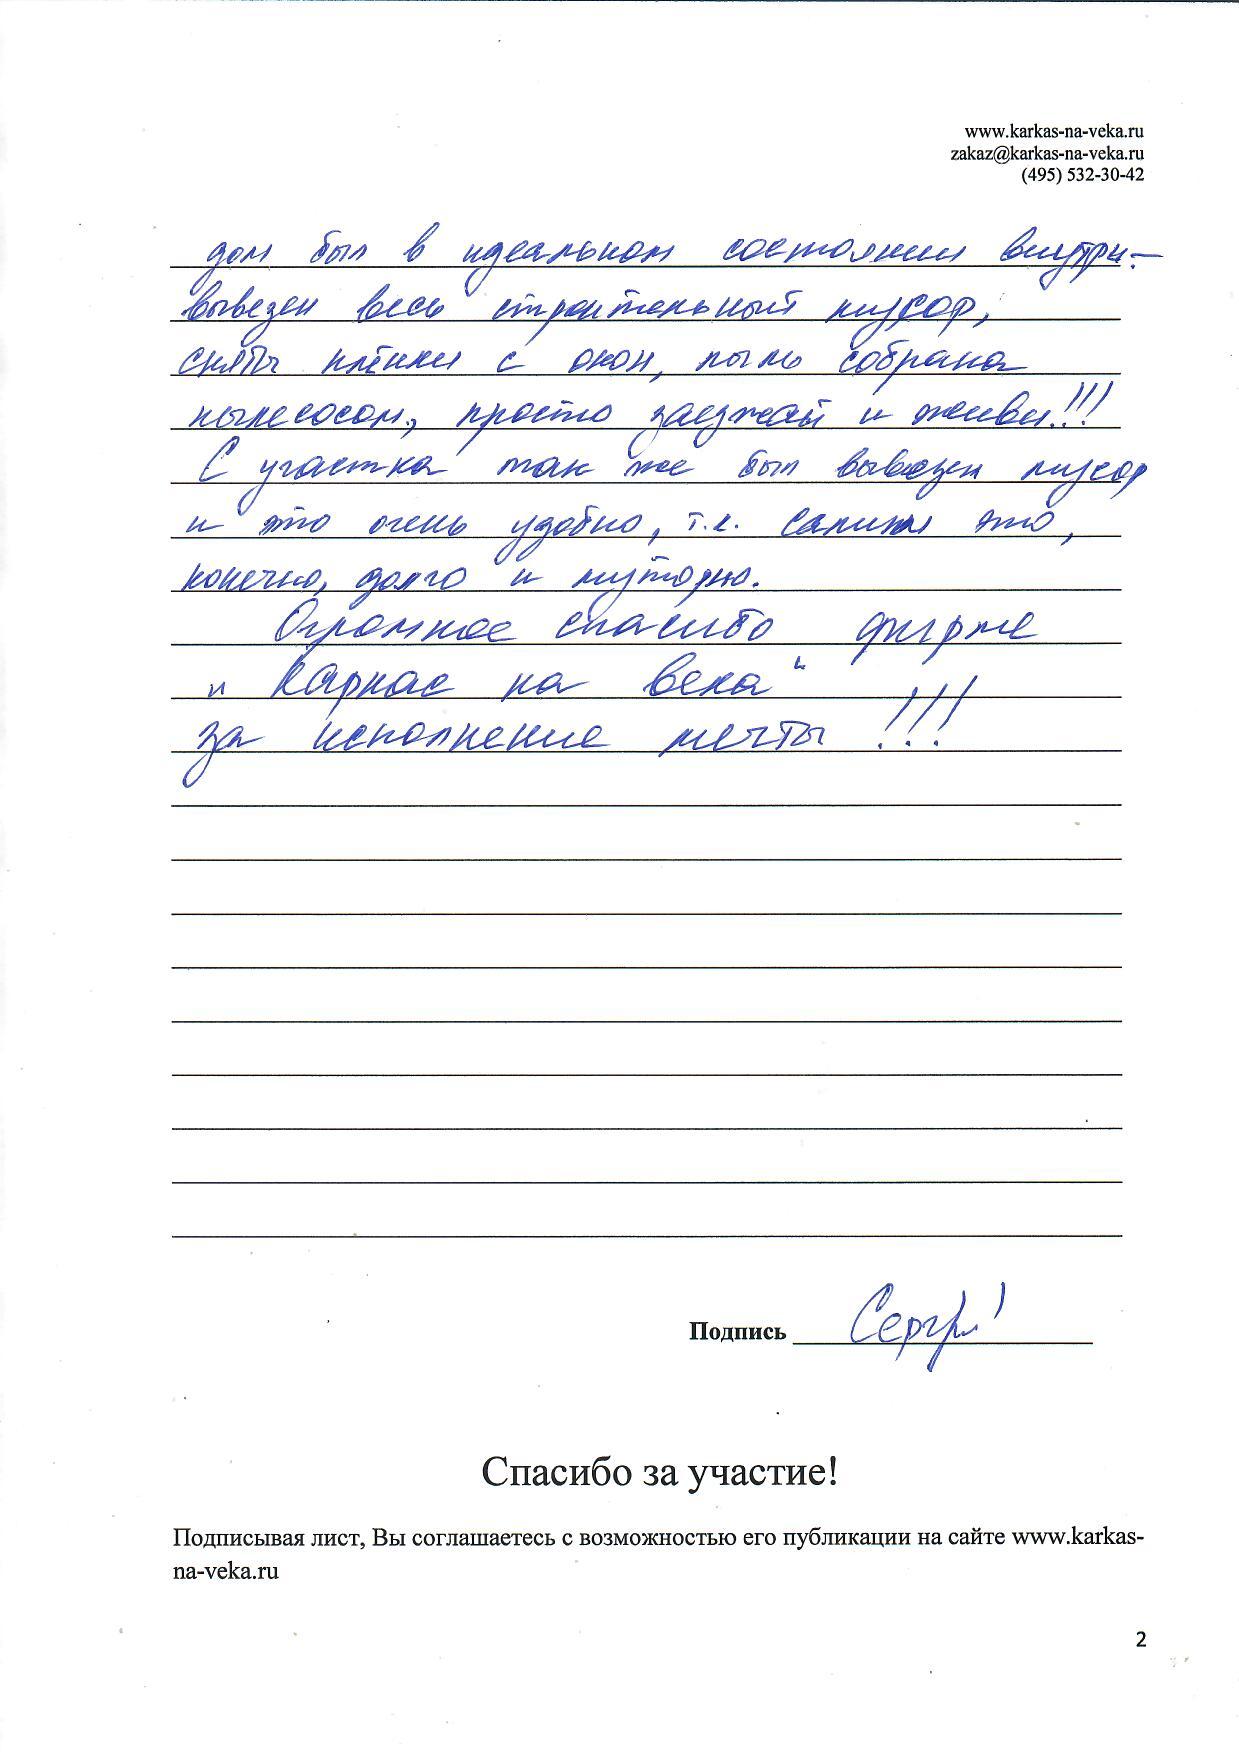 www.karkas-na-veka.ru
zakaz@karkas-na-veka.ru
(495) 532-30-42
дом был в идеальном состоянии внутри –
вывезен весь строительный мусор,
сняты плёнки с окон, пыль собрана
пылесосом, просто заезжай и живи!!!
С участка так же был вывезен мусор
и это очень удобно, т.к. самим это,
конечно, долго и муторно.
Огромное спасибо фирме
„Каркас на века“
за исполнение мечты!!!
Подпись
Спасибо за участие!
Подписывая лист, Вы соглашаетесь с возможностью его публикации на сайте www.karkas-
na-veka.ru
2